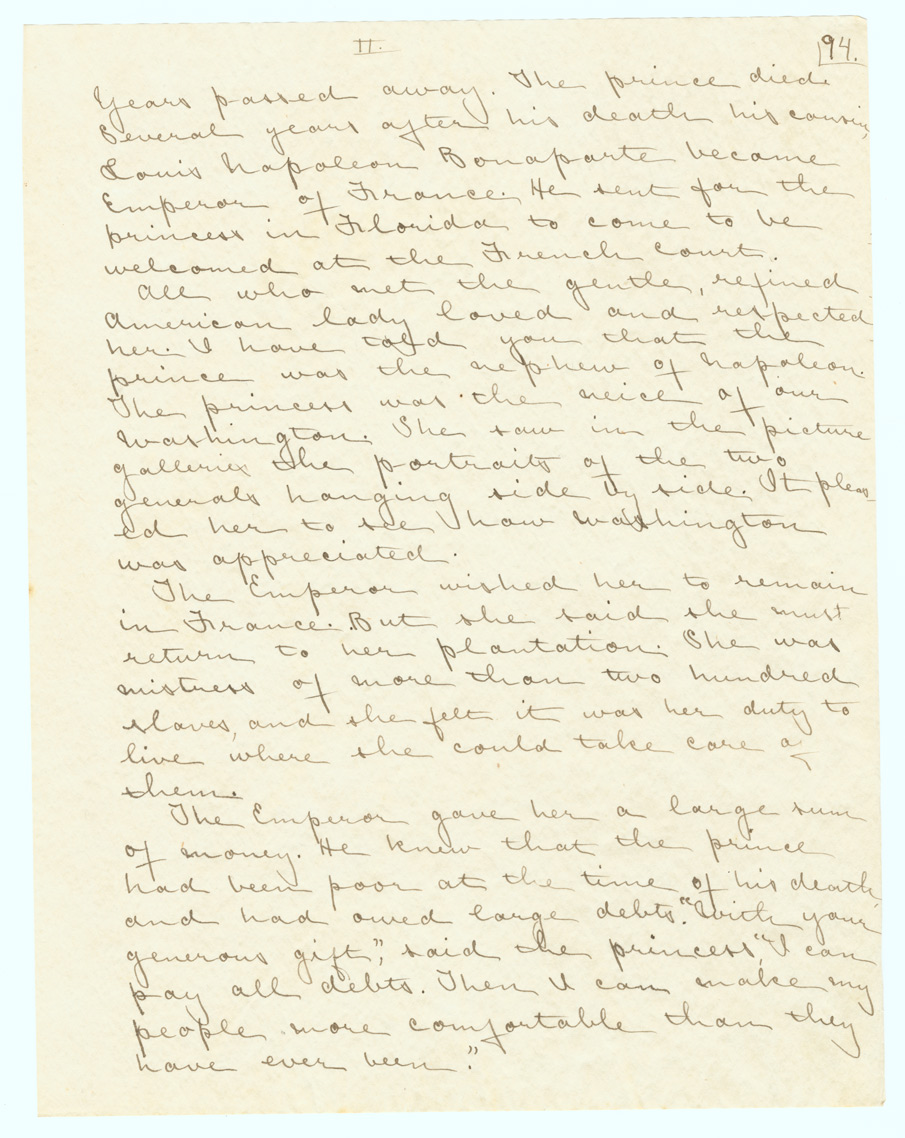 II.
94.
Years passed away. The prince died.
Several years after his death his cousin,
Louis Napoleon Bonaparte became
Emperor of France. He sent for the
princess in Florida to come to be
welcomed at the French Court.
All who met the gentle, refined
American lady loved and respected
her. I have told you that the
prince was the nephew of Napoleon.
The princess was the neice of our
Washington. She saw in the picture
galleries the portraits of the two
generals hanging side by side. It pleas-
ed her to see how Washington
was appreciated.
The Emperor wished her to remain
in France. But she said she must
return to her plantation. She was
mistress of more than two hundred
slaves, and she felt it was her duty to
live where she could take care of
them.
The Emperor gave her a large sum
of money. He knew that the prince
had been poor at the time of his death,
and had owed large debts. "With your
generous gift," said the princess, "I can
pay all debts. Then I can make my
people more comfortable than they
have ever been."